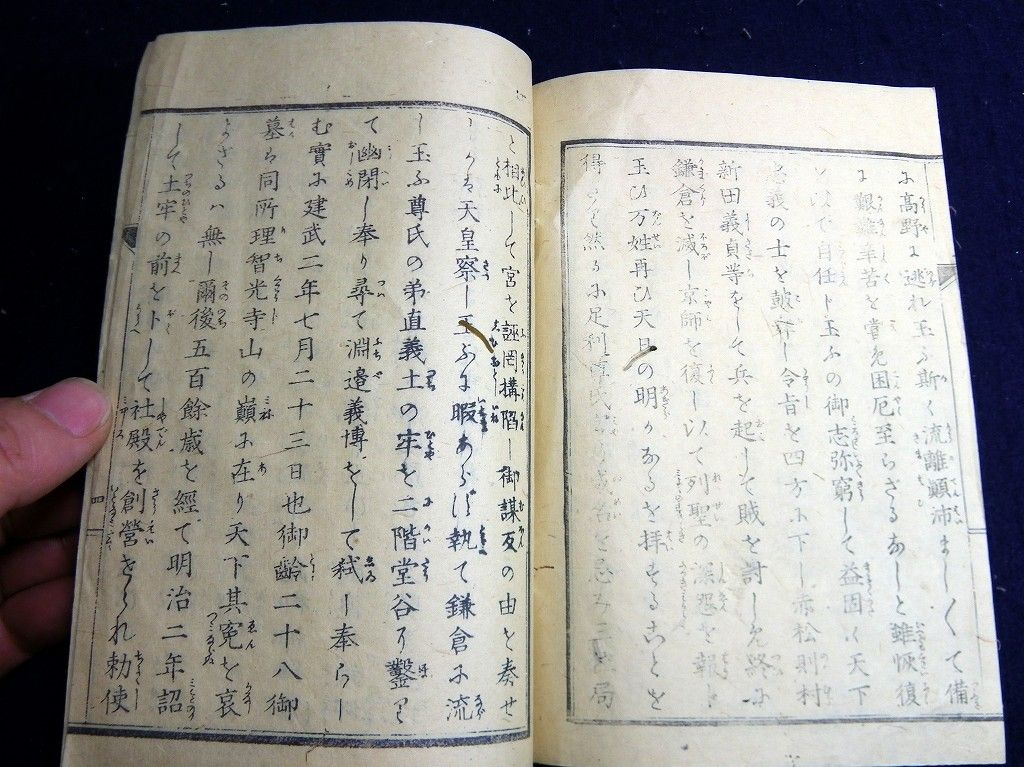 に高野に逃れ玉ふ斯く流離顛沛まし〳〵て備
に艱難辛苦を嘗め困厄至らざるなしと雖恢復
を以て自任し玉ふの御志弥窮して益固く天下
忠義の士を鼓舞し令旨を四方に下し赤松則村
新田義貞等をして兵を起して賊を討しめ終に
鎌倉を滅し京師を復し以て列聖の深怨を報し
玉ひ万姓再ひ天日の明かなるを拝することを
得たり然るに足利尊氏
と相比して宮を誣罔構陥し御謀反の由を奏せ
しかは天皇察し玉ふに暇あらず執て鎌倉に流
し玉ふ尊氏の弟直義土の牢を二階堂谷に鑿り
て幽閉し奉り尋て淵邉義博をして弑し奉らし
む實に建武二年七月二十三日也御齢二十八御
墓は同所理智光寺山の巓に在り天下其冤を哀
まざるハ無し爾後五百餘歳を經て明治二年詔
して土牢の前を卜して社殿を創營せられ勅使
四